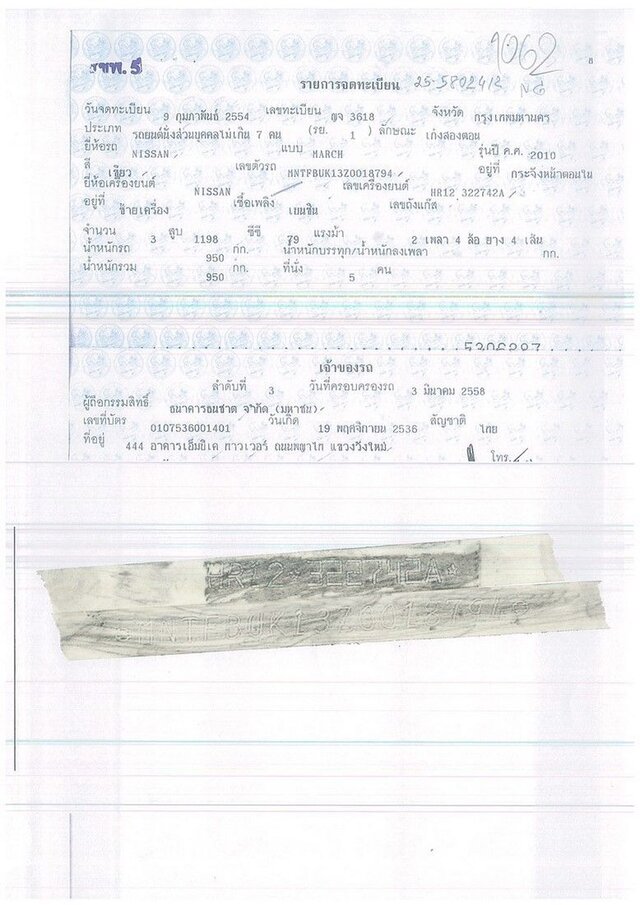 1062
8
รขพ. 5
รายการจดทะเบียน 25-5802412
วันจดทะเบียน 9 กุมภาพันธ์ 2554 เลขทะเบียน ญจ 3618 จังหวัด กรุงเทพมหานคร
ประเภท รถยนต์นั่งส่วนบุคคลไม่เกิน 7 คน (รย. 1 ) ลักษณะ เก๋งสองตอน
ยี่ห้อรถ NISSAN แบบ MARCH รุ่นปี ค.ศ. 2010
สี เขียว เลขตัวรถ MNTFBUK13Z0018794 อยู่ที่ กระจังหน้าตอนใน
ยี่ห้อเครื่องยนต์ NISSAN เลขเครื่องยนต์ HR12 322742A
อยู่ที่ ซ้ายเครื่อง เชื้อเพลิง เบนซิน เลขถังแก๊ส
จำนวน 3 สูบ 1198 ซีซี 79 แรงม้า 2 เพลา 4 ล้อ ยาง 4 เส้น
น้ำหนักรถ 950 กก. น้ำหนักบรรทุก/น้ำหนักลงเพลา กก.
น้ำหนักรวม 950 กก. ที่นั่ง 5 คน
5306287
เจ้าของรถ
ลำดับที่ 3 วันที่ครอบครองรถ 3 มีนาคม 2558
ผู้ถือกรรมสิทธิ์ ธนาคารธนชาต จำกัด (มหาชน)
เลขที่บัตร 0107536001401 วันเกิด 19 พฤศจิกายน 2536 สัญชาติ ไทย
ที่อยู่ 444 อาคารเอ็มบีเค ทาวเวอร์ ถนนพญาไท แขวงวังใหม่
โทร.